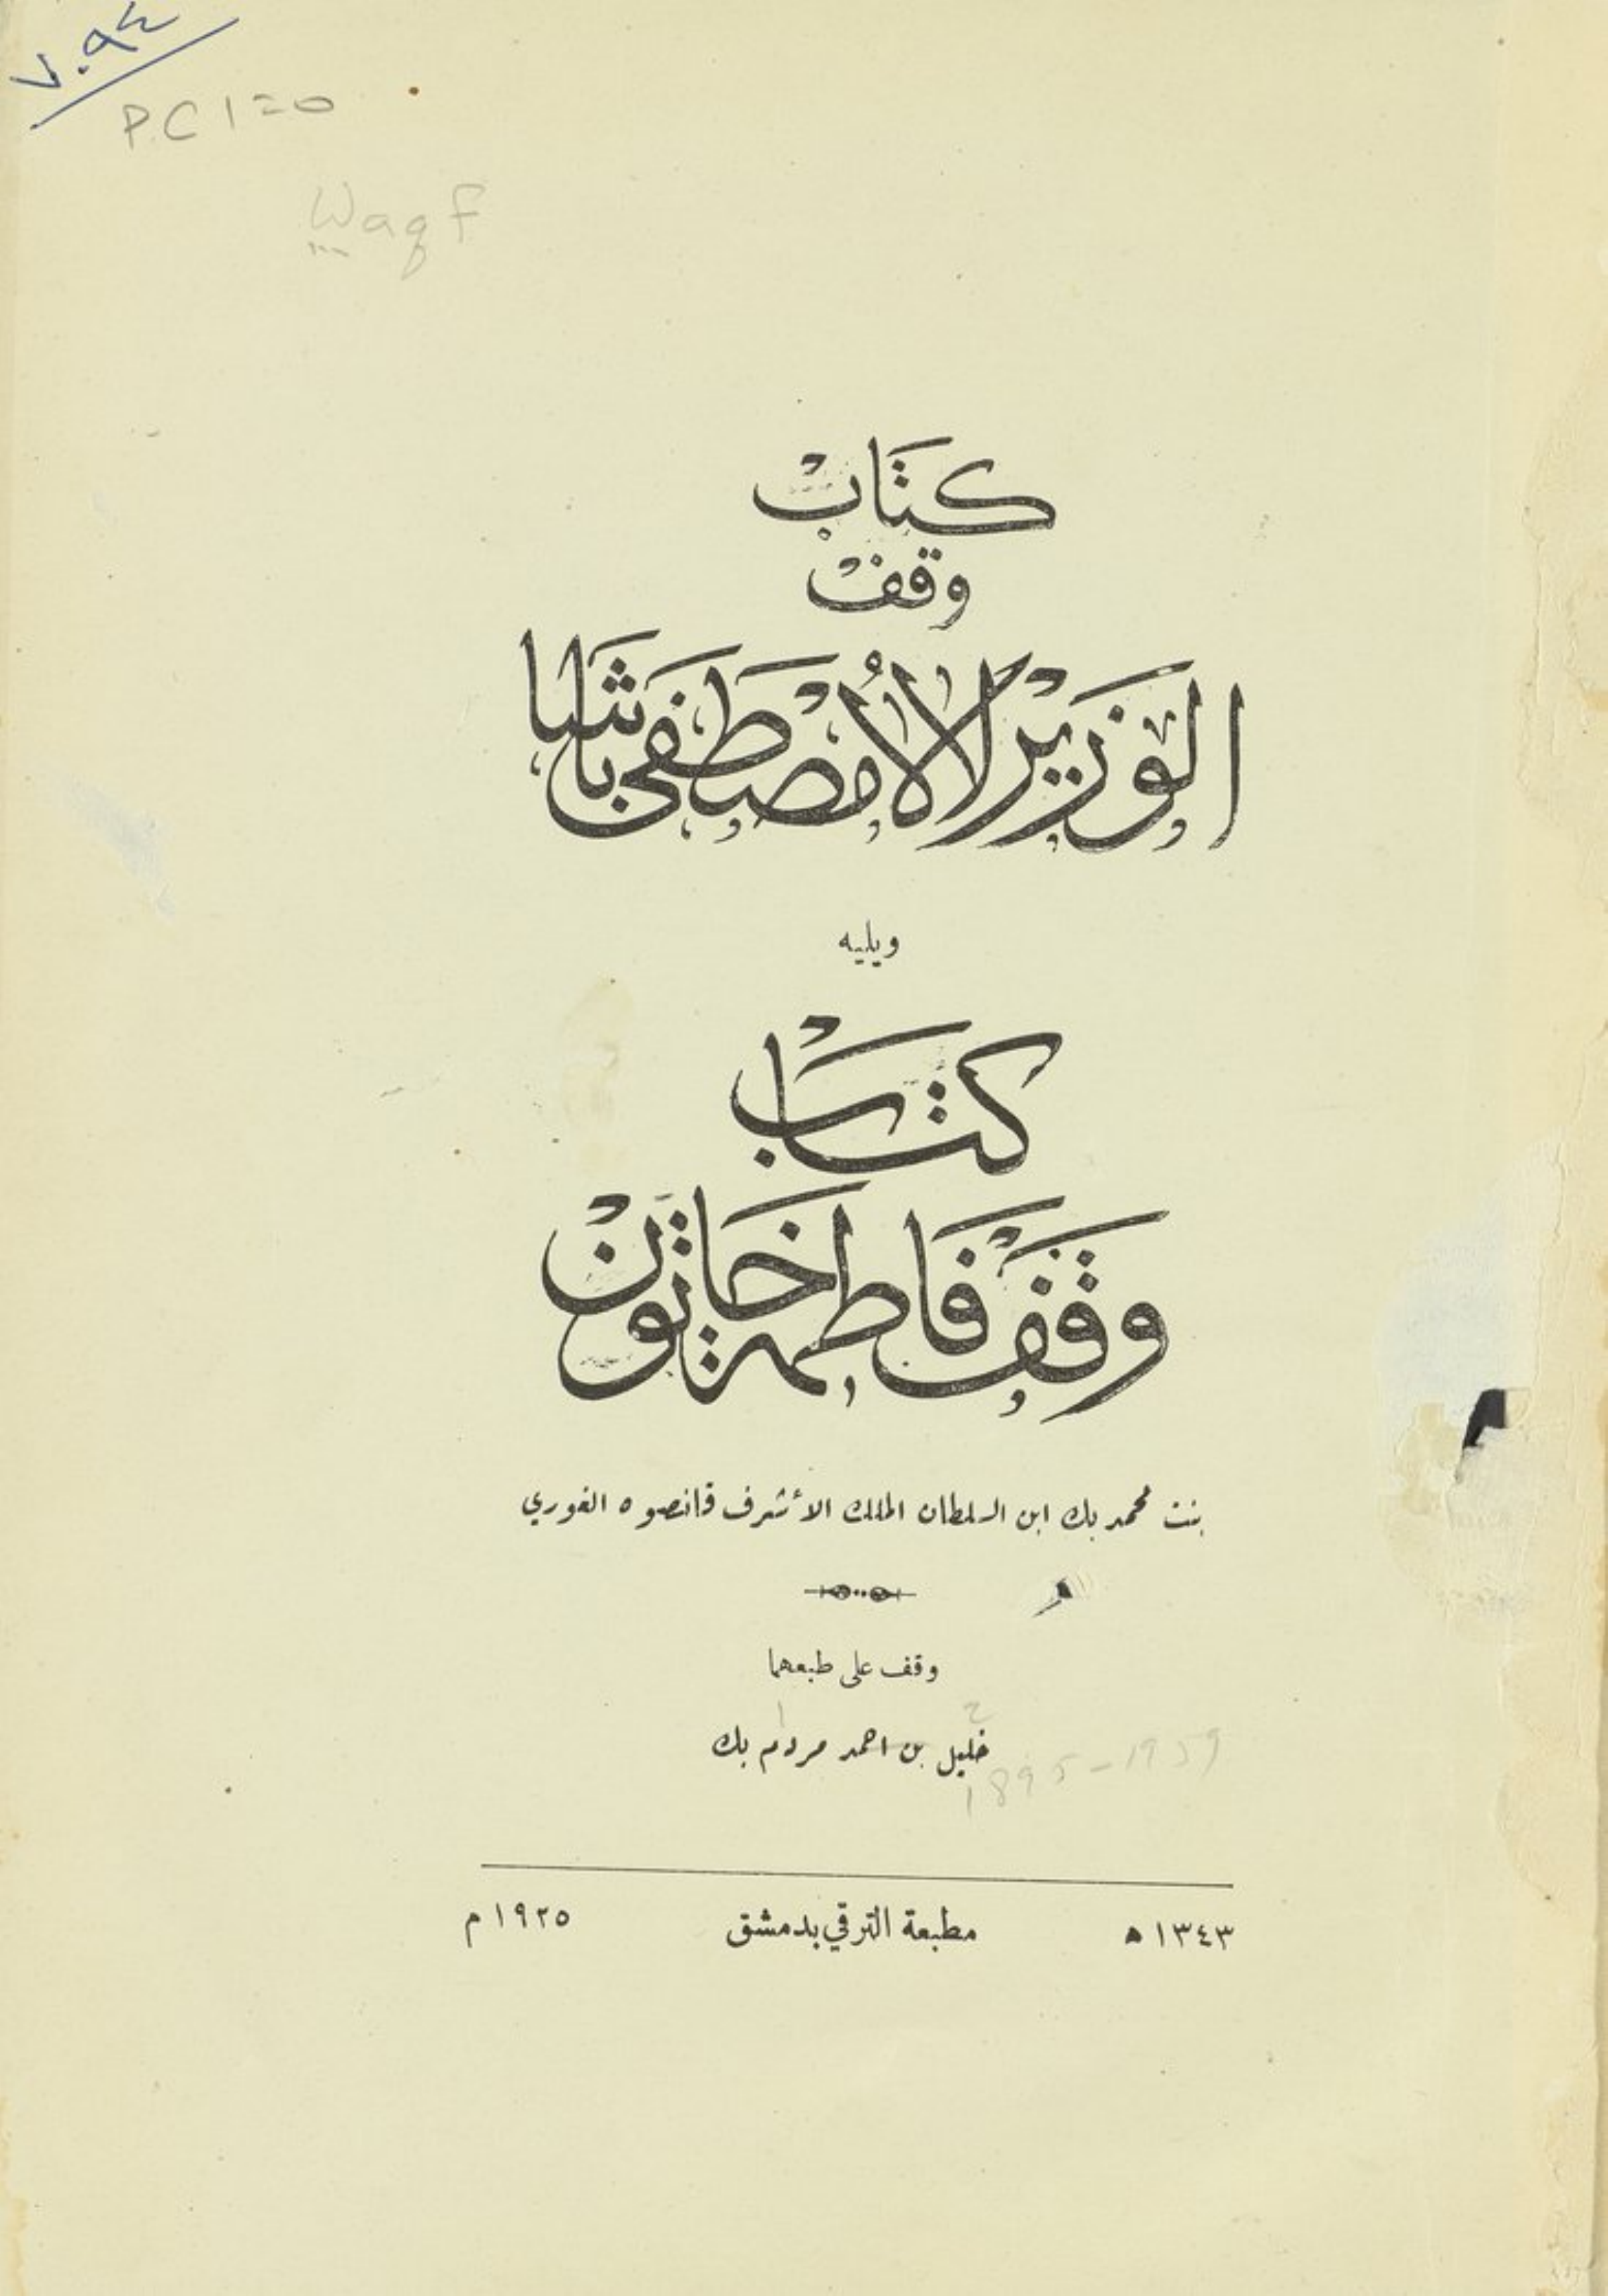 ٧٠٩٤
P.C 1=0
Waqf
كتاب
وقف
الوزير لالا مصطفى باشا
ويليه
كتاب
وقف فاطمة خاتون
بنت محمد بك ابن السلطان الملك الأشرف قانصوه الغوري
وقف على طبعهما
خليل بن احمد مردم بك
1895-1959
١٣٤٣ ه مطبعة الترقي بدمشق ١٩٢٥ م